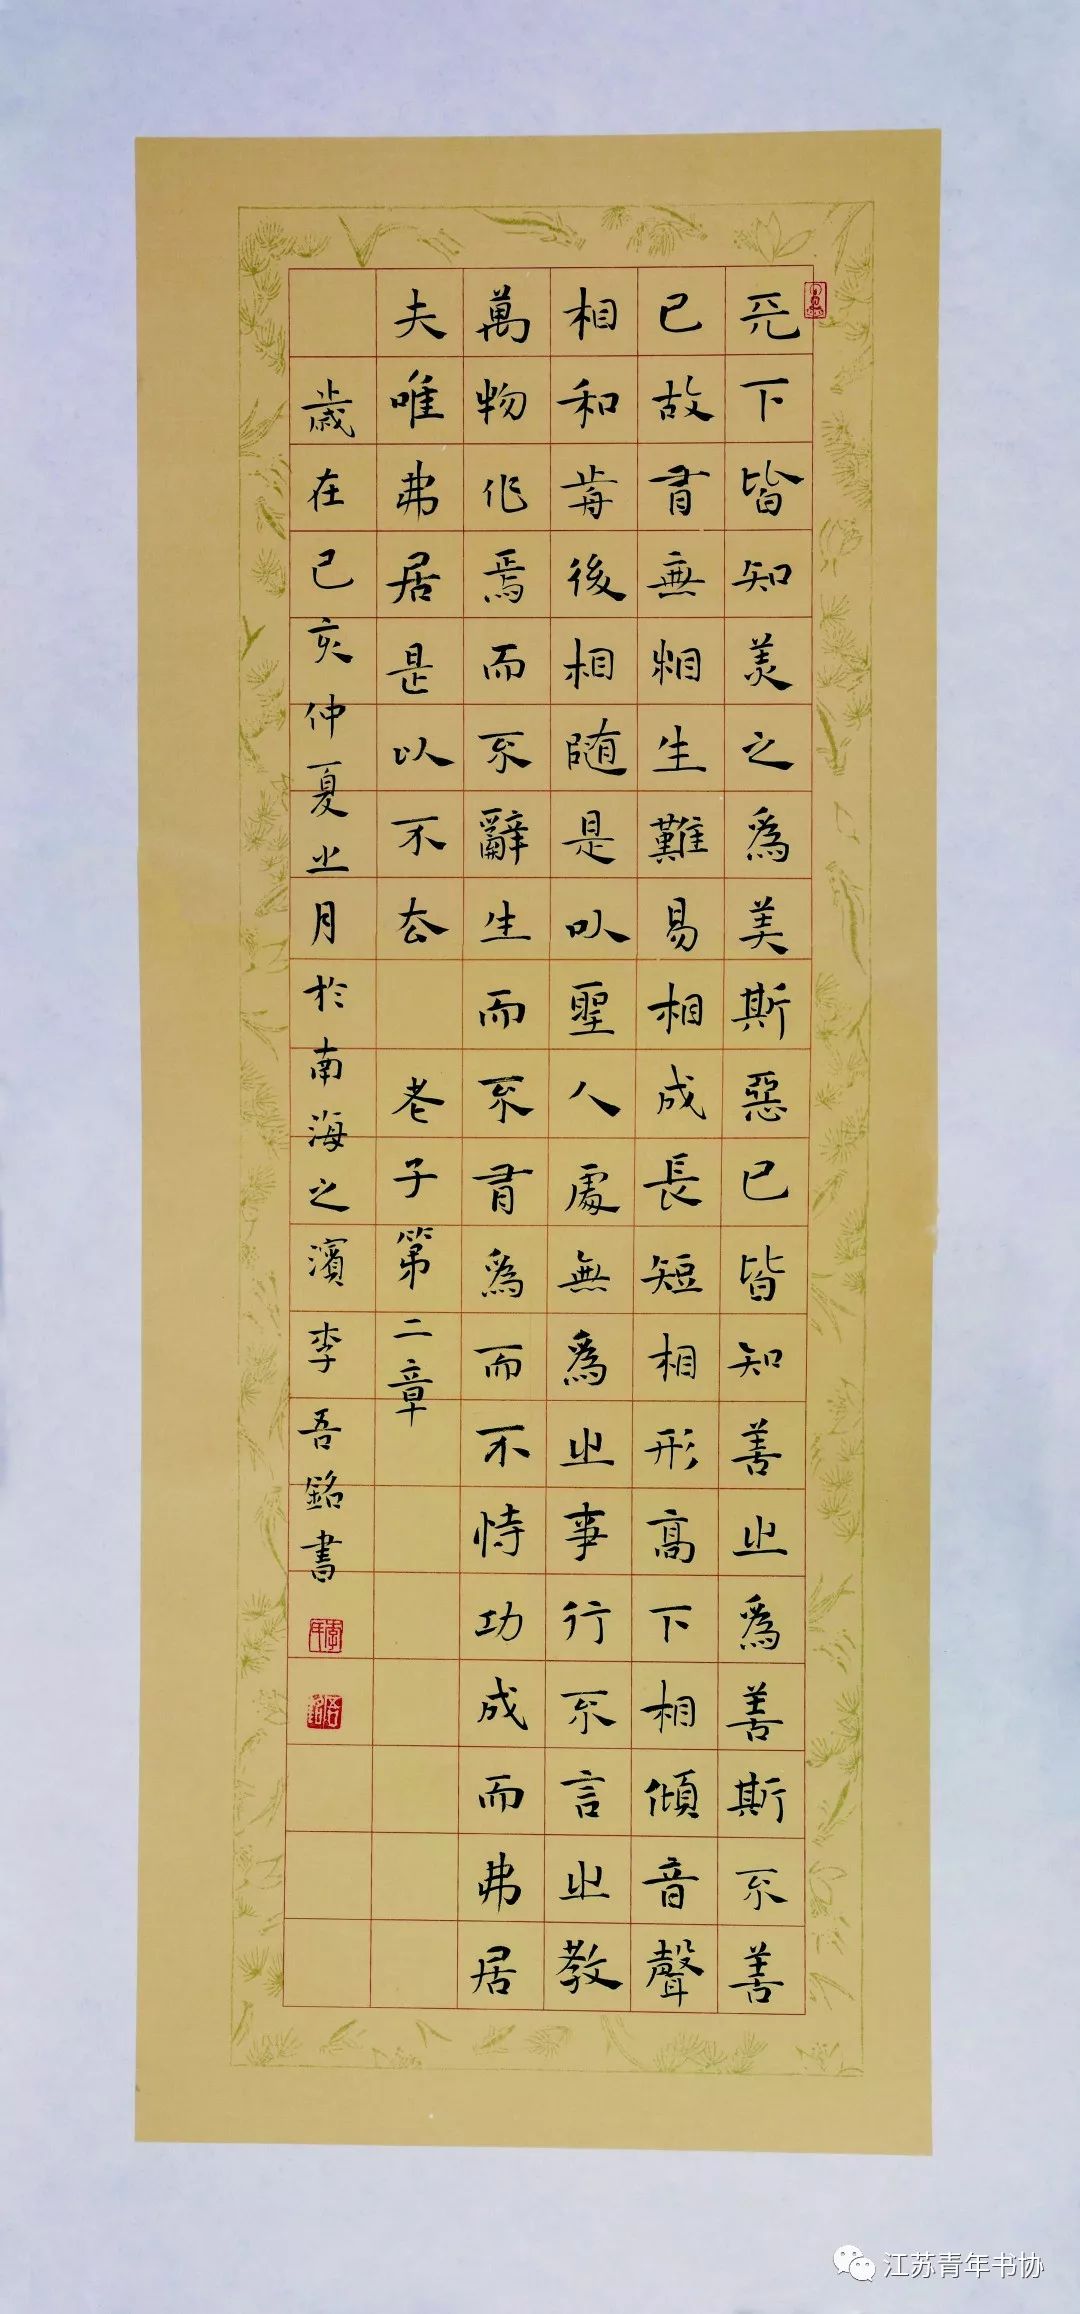 天下皆知美之為美斯惡已皆知善之為善斯不善
已故有無相生難易相成長短相形高下相傾音聲
相和前後相隨是以聖人處無為之事行不言之教
萬物作焉而不辭生而不有為而不恃功成而弗居
夫唯弗居是以不去 老子第二章
歲在己亥仲夏之月於南海之濱李吾銘書
江苏青年书协